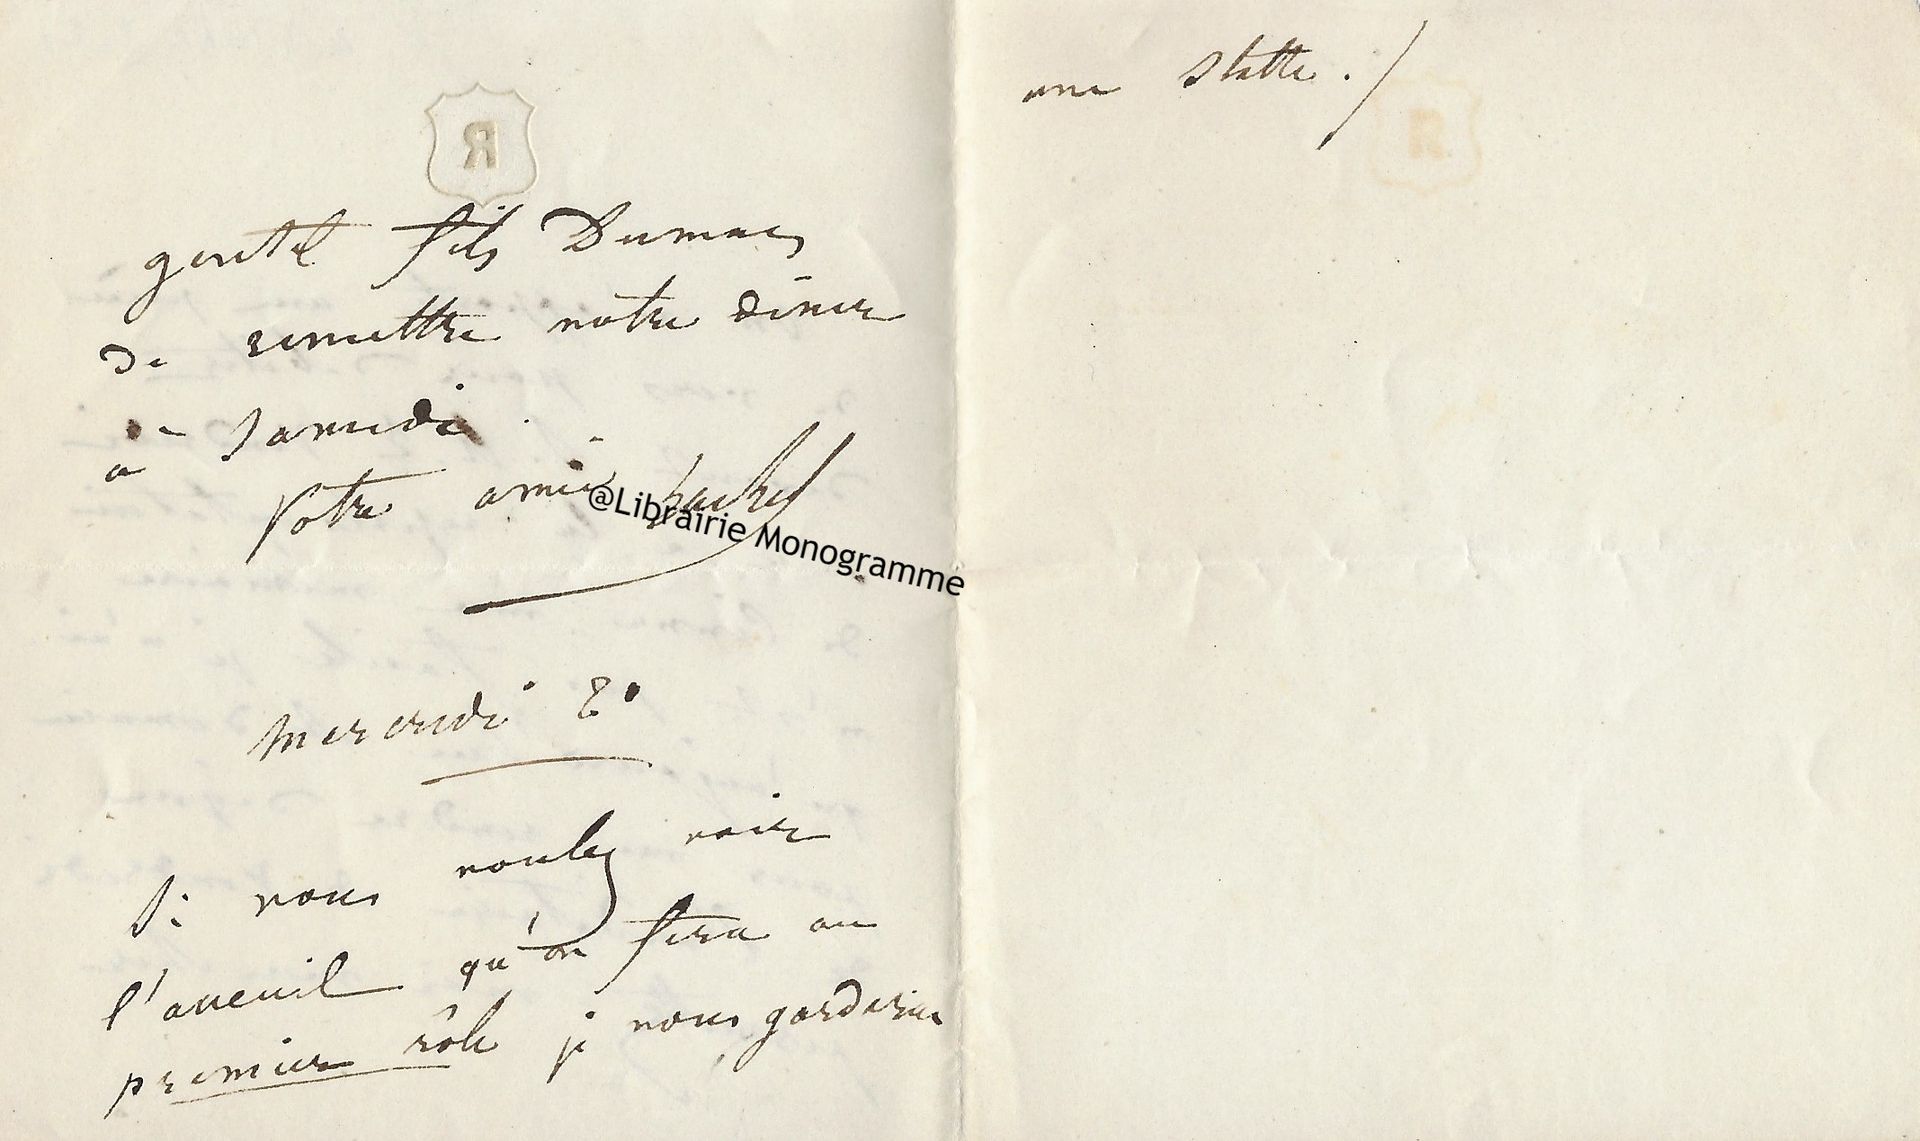 R
gentil fils Dumas
de remettre notre dîner
à Samedi
a
Votre amie Rachel
@Librairie Monogramme
Mercredi 2°
Si vous voulez voir
l'acceuil qu'on fera au
premier rôle je vous garderai
une stalle ./
R